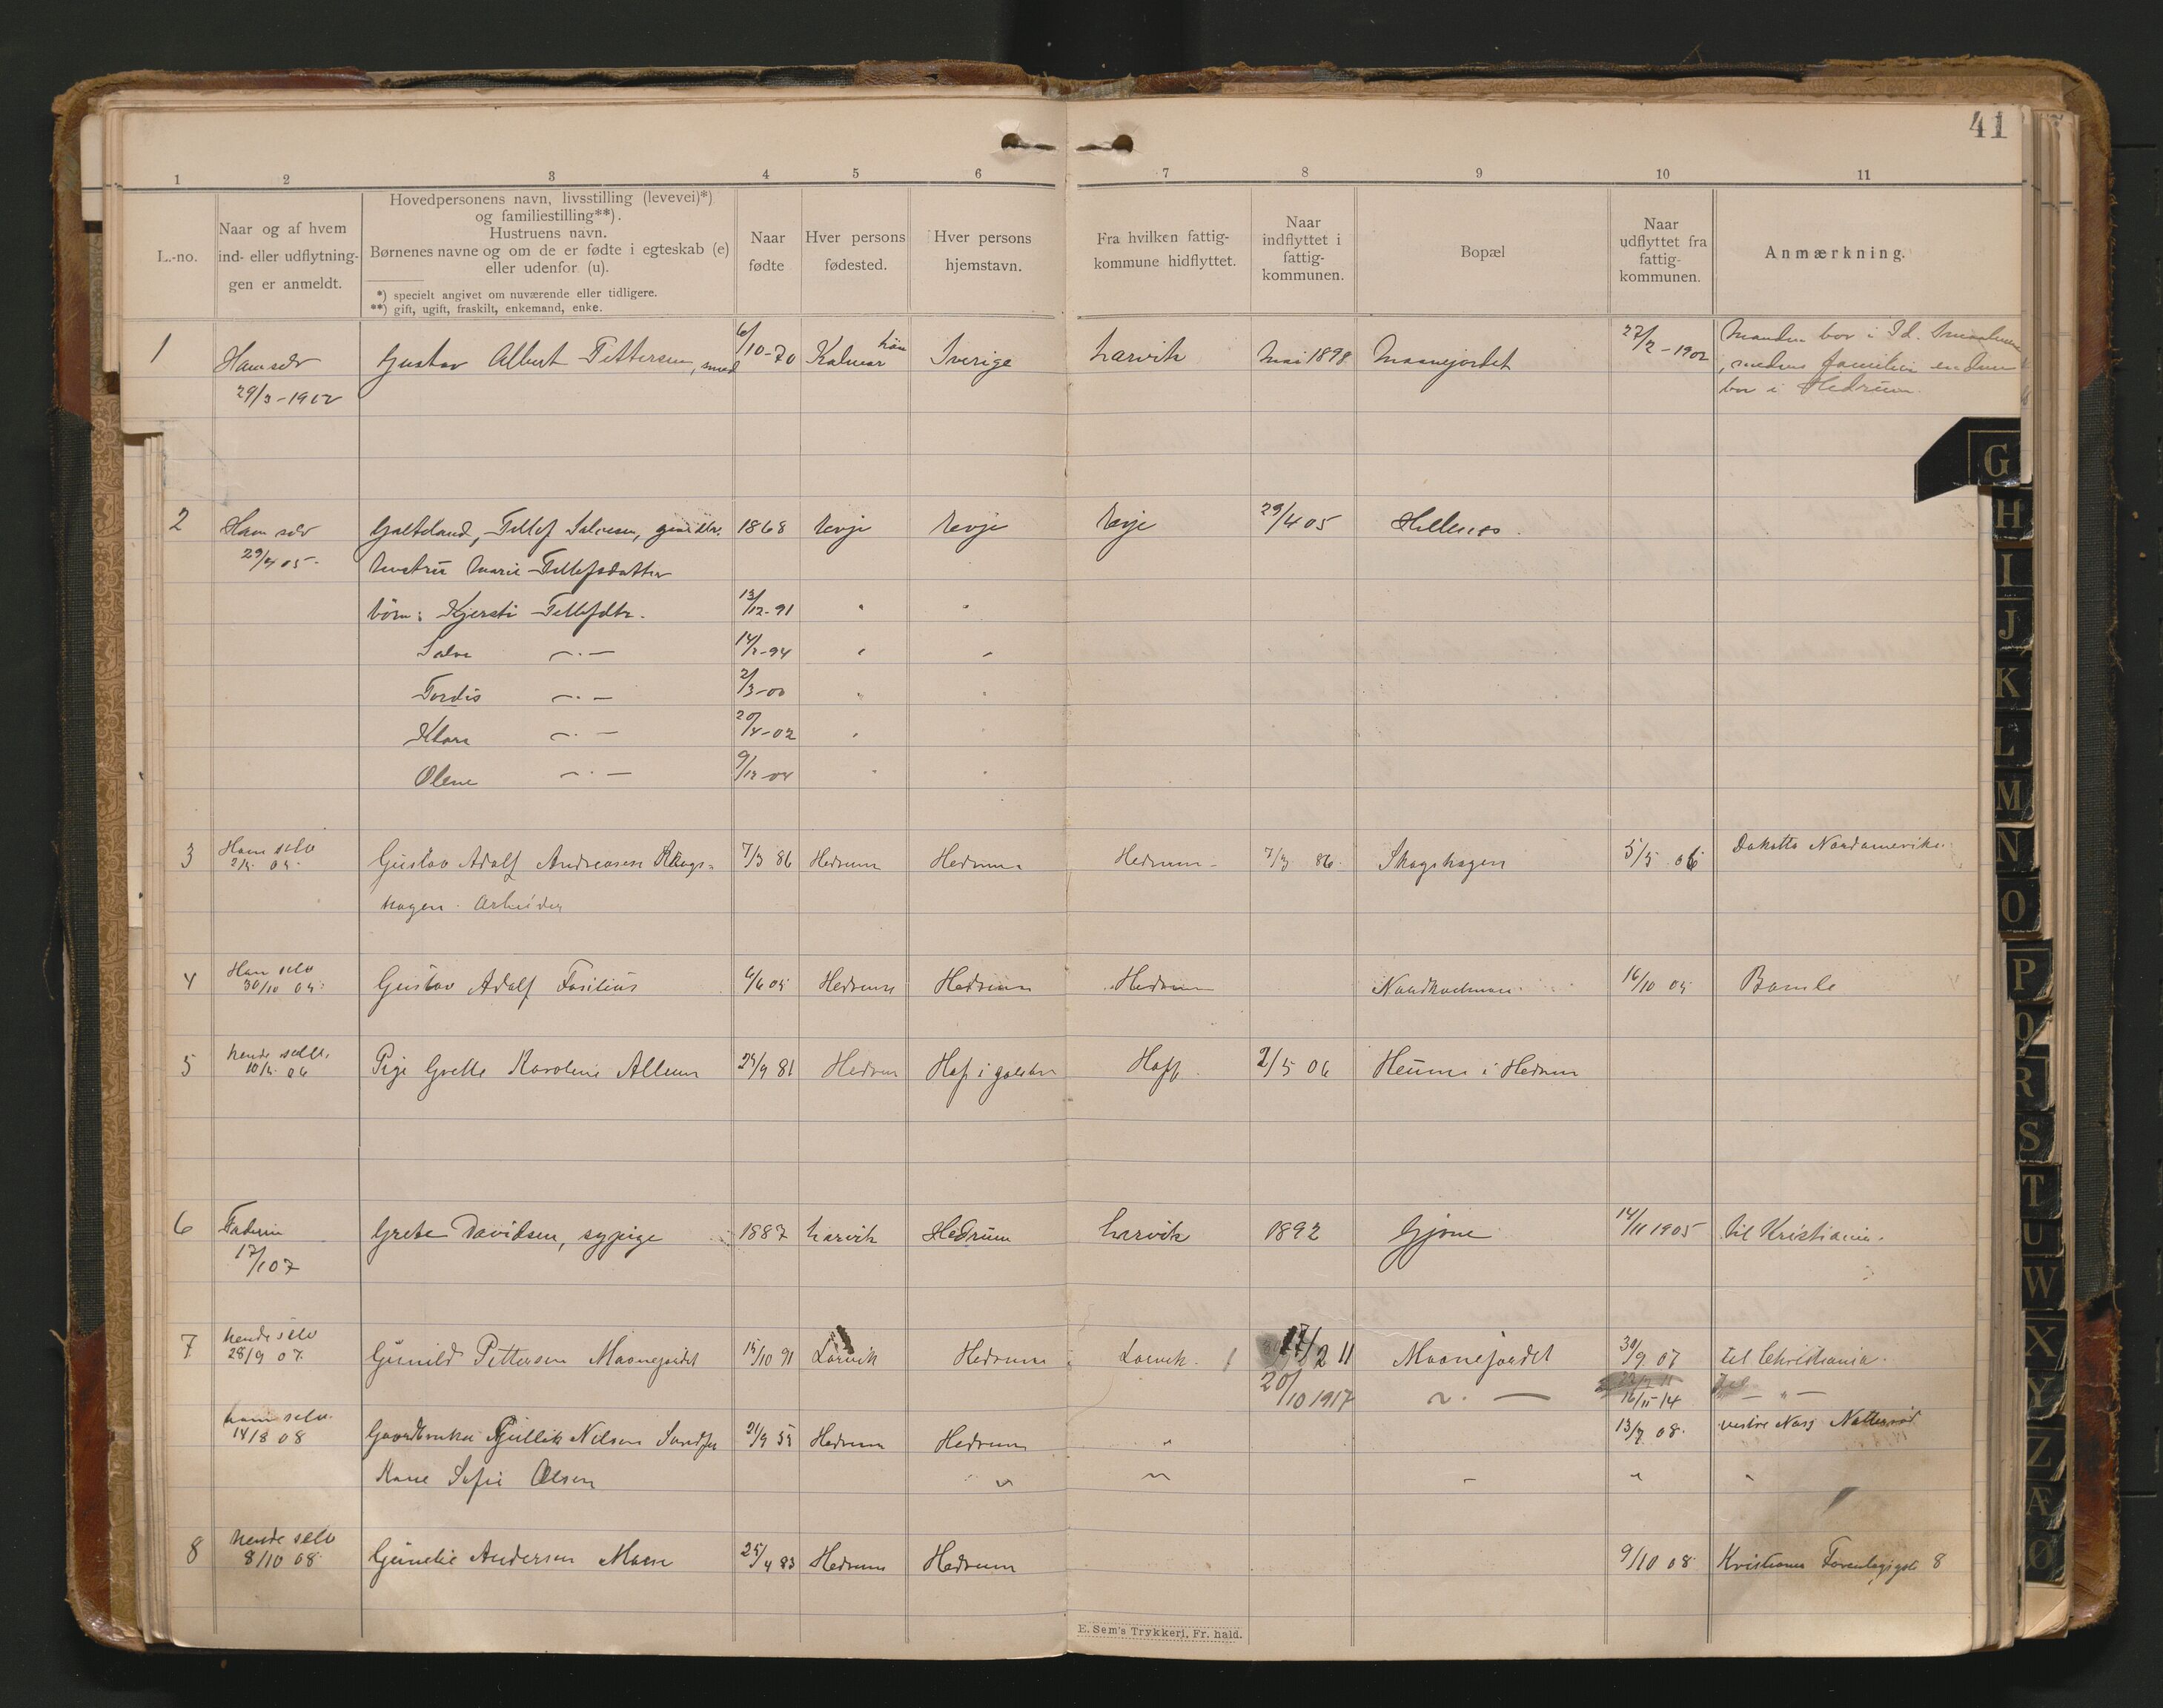 41
1 2 3 4 5 6 7 8 9 10 11
L.-no.
Naar og af hvem
ind- eller udflytnin-
gen er anmeldt.
Hovedpersonens navn, livsstilling (levevei)*)
og familiestilling**).
Hustruens navn.
Børnenes navne og om de er fødte i egteskab (e)
eller udenfor (u).
*) specielt angivet om nuværende eller tidligere.
**) gift, ugift, fraskilt, enkemand, enke.
Naar
fødte
Hver persons
fødested.
Hver persons
hjemstavn.
Fra hvilken fattig-
kommune hidflyttet.
Naar
indflyttet i
fattig-
kommunen.
Bopæl
Naar
udflyttet fra
fattig-
kommunen.
Anmærkning.
1 Ham selv Gustav Albert Pettersen, smed 6/10-70 Kalmar län Sverige Larvik Mai 1898 Maanejordet 27/2-1902 Manden bor i Id. Smaalenene
29/3-1902 , medens familien endnu
bor i Hedrum.
2 Ham selv Galteland, Tellef Salvesen, 1868 Evje Evje Evje 29/4 05
29/4 05. Hustru Marie Tellefsdatter
børn: Kjersti Tellefdtr. 13/12-91 " "
Salve —"— 14/2-94 " "
Tordis —"— 2/3-00 " "
Klara —"— 20/4-02 " "
Olene —"— 9/12-04 " "
3 Ham selv Gustav Adolf Andreasen Skaugs- 7/3 86 Hedrum Hedrum Hedrum 7/3 86 Skagshagen 5/5 06 Dakotta Nordamerika
hagen. Arbeider
4 Ham selv Gustav Adolf Hedrum Hedrum Hedrum 16/10 05 Bamle
30/10 05
5 hende selv. Pige Grette Karoline Allum 25/9 81 Hedrum Hof i Hoff 2/5 06 Heum i Hedrum
6 Faderen Grete Davidsen, sypige 1887 Larvik Hedrum Larvik 1892 Gjone 14/11 1905 til Kristiania.
17/1 07
7 hende selv Gunild Pettersen Maanejordet 15/10 91 Larvik Hedrum Larvik 17/2 11 Maanejordet 30/9 07 til Christiania.
28/9 07. 20/10 1917 —"— 16/5 14 —"—
ham selv. Gaardbruker Gullik Nilsen 21/9 55 Hedrum Hedrum " 13/7 08.
14/8 08
Kone Sofie Olsen " " " " "
8 hende selv Gunelie Andersen Moen 25/4 83 Hedrum Hedrum 9/10 08 Kristiania 8
8/10 08
E. Sem's Trykkeri, Fr. hald.
G
H
I
J
K
L
M
N
O
P
Q
R
S
T
U
W
X
Y
Z
Æ
Ø